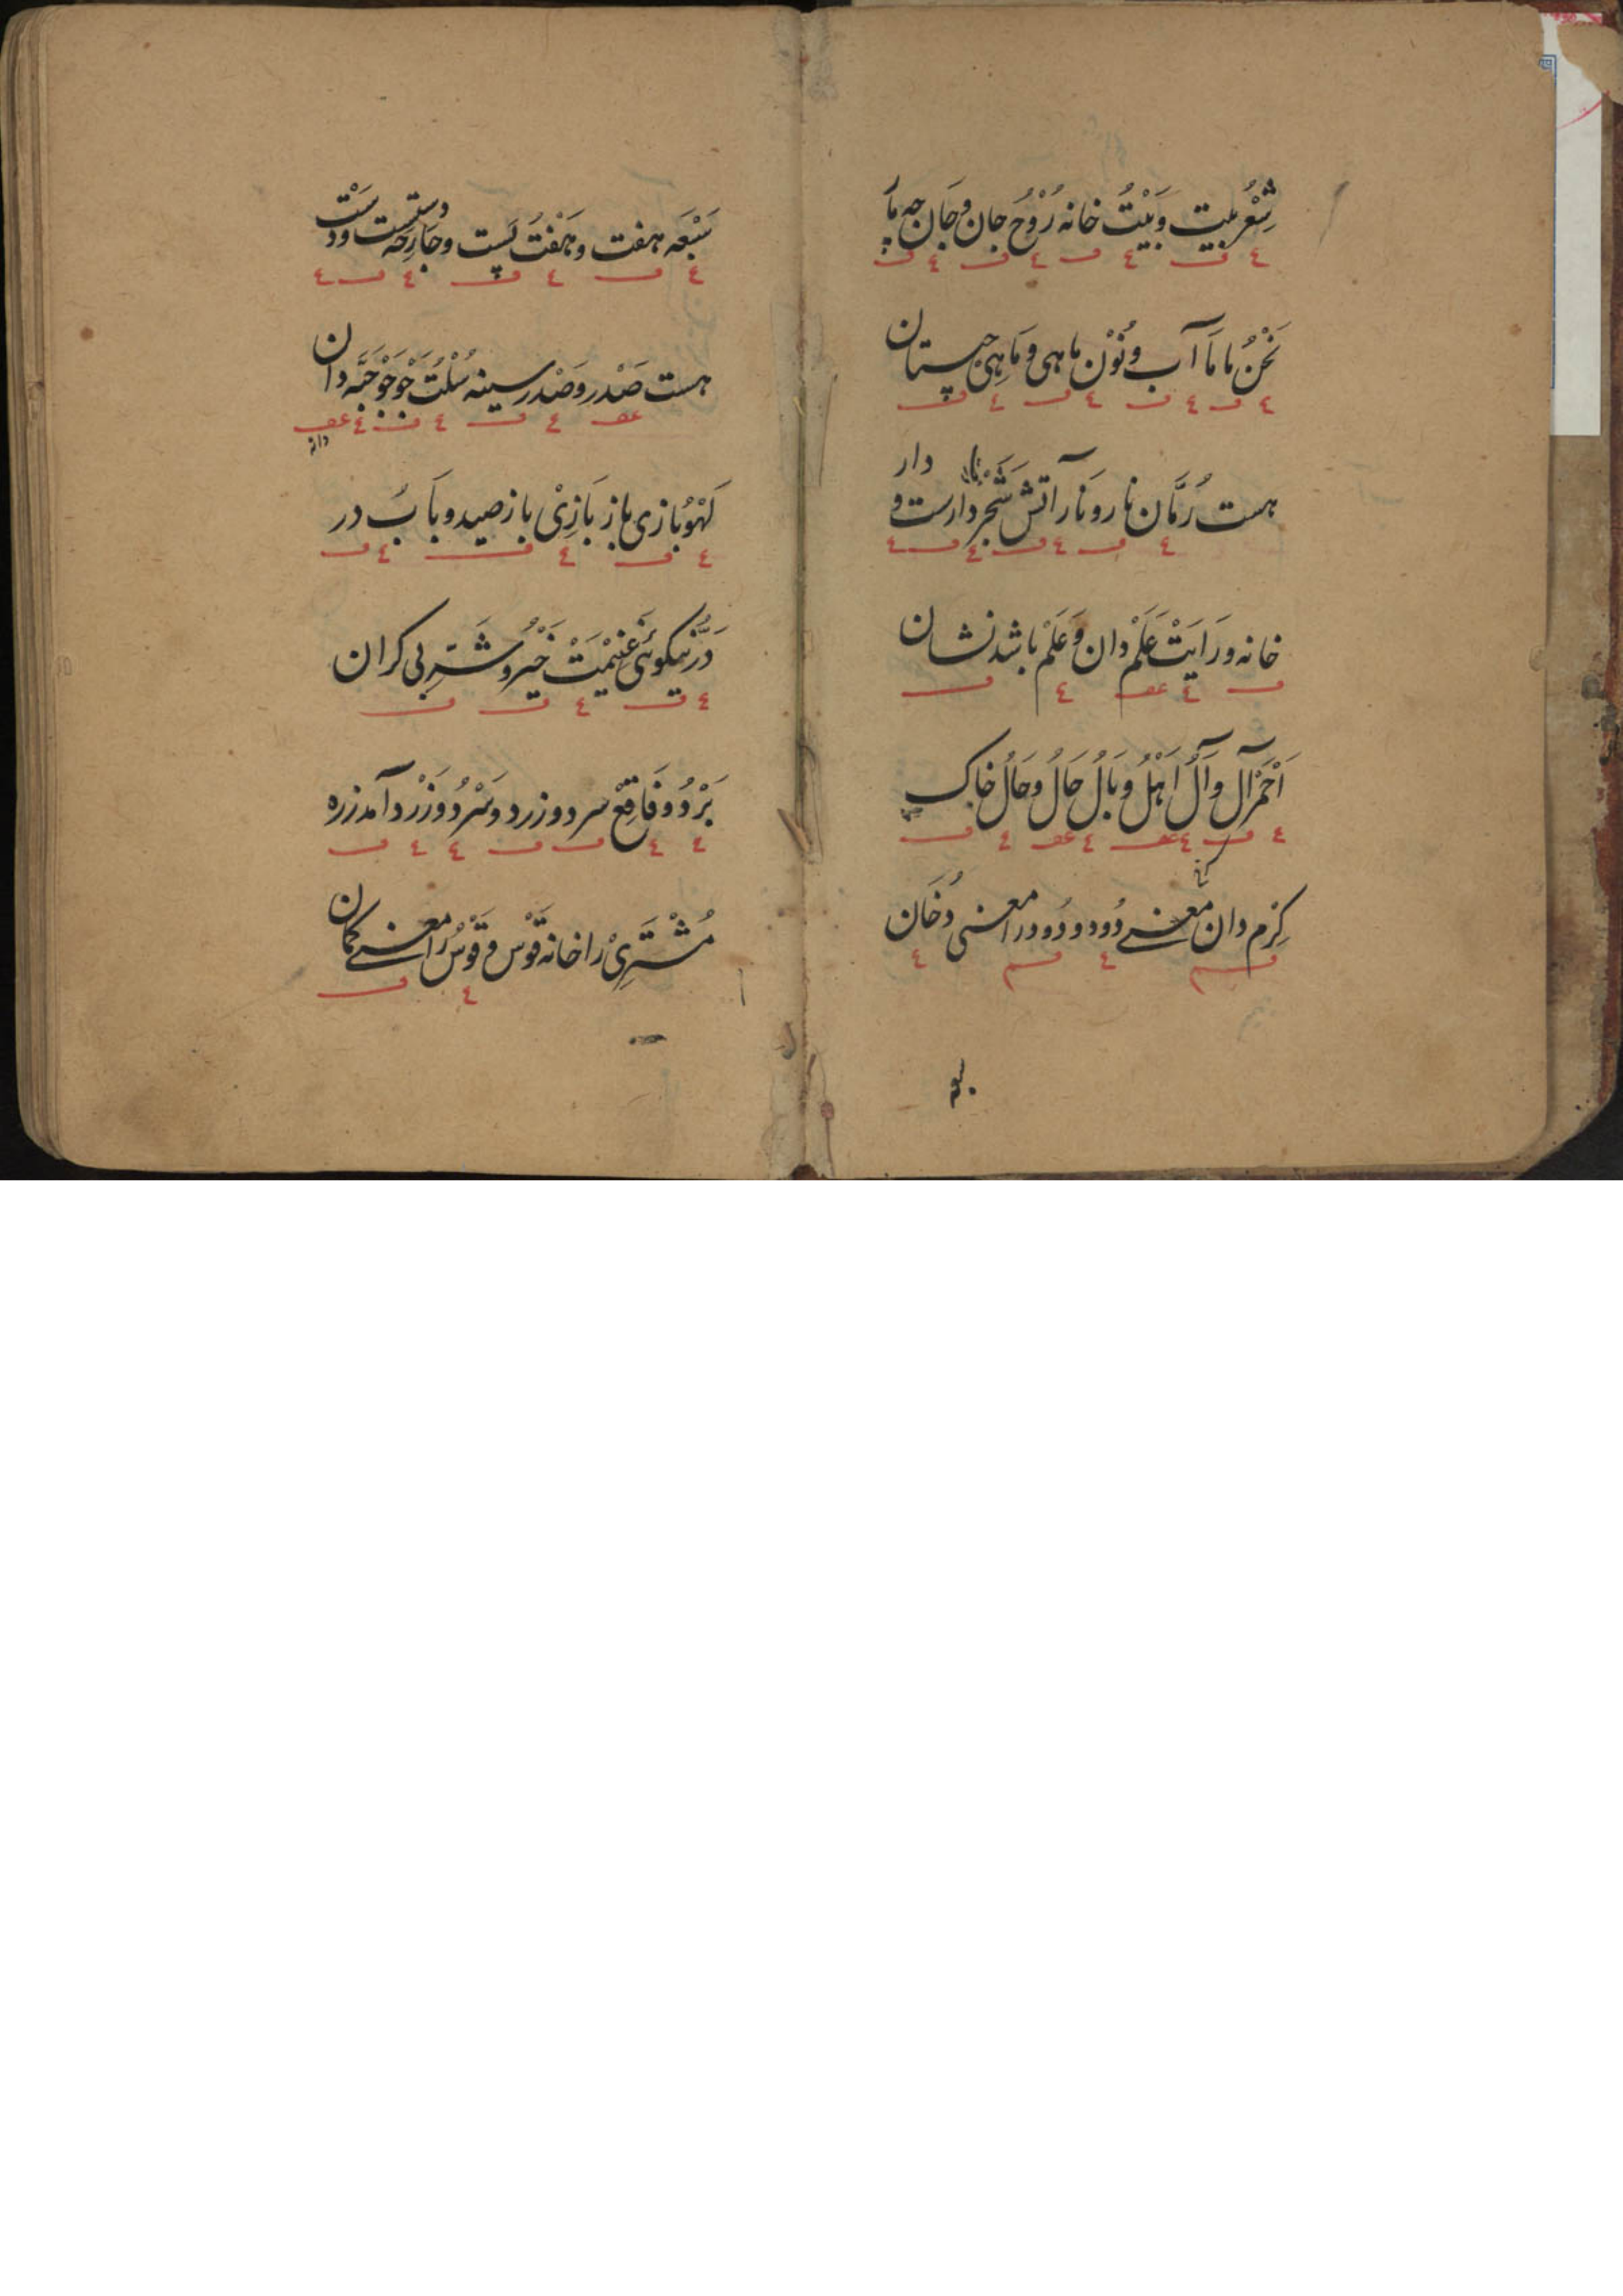 شِعْر بیت وَبَیْتُ خانه رُوْح جان وجَان چه مآ
نَحْنُ ما مَا آب ونُوْن ماهی ومَاهِی چیستان
هست رُمَّان نار ونَار آتش شَجَر دارست و دار
خانه ورَایَتْ عَلَمْ دان وعَلَمْ باشد نشان
اَحْمَر آل وآلُ اَهْلُ وبَالُ حَالُ وحَالُ خاک
کِرْم دان معنی دُود ودُود را معنی دُخَان
سَبْعَه هفت وهَفْتُ پست وجَارِحَه دستست ودَسْت
هست صَدْر وصَدْر سینه سُلْتُ جَوْ جَوْ حَبَّه دان
دانه
لَهْوُ بازی باز بَازِیْ باز صید وبَابُ در
دَرُّ نیکوئی غَنِیْمَتْ خَیْر وشَرّ بی کران
بَرْدُ وفَاقِعْ سرد وزرد وسَرْدُ وزَرْد آمد زره
مُشْتَرِیْ را خانه قَوْس وقَوْسُ را معنی کمان